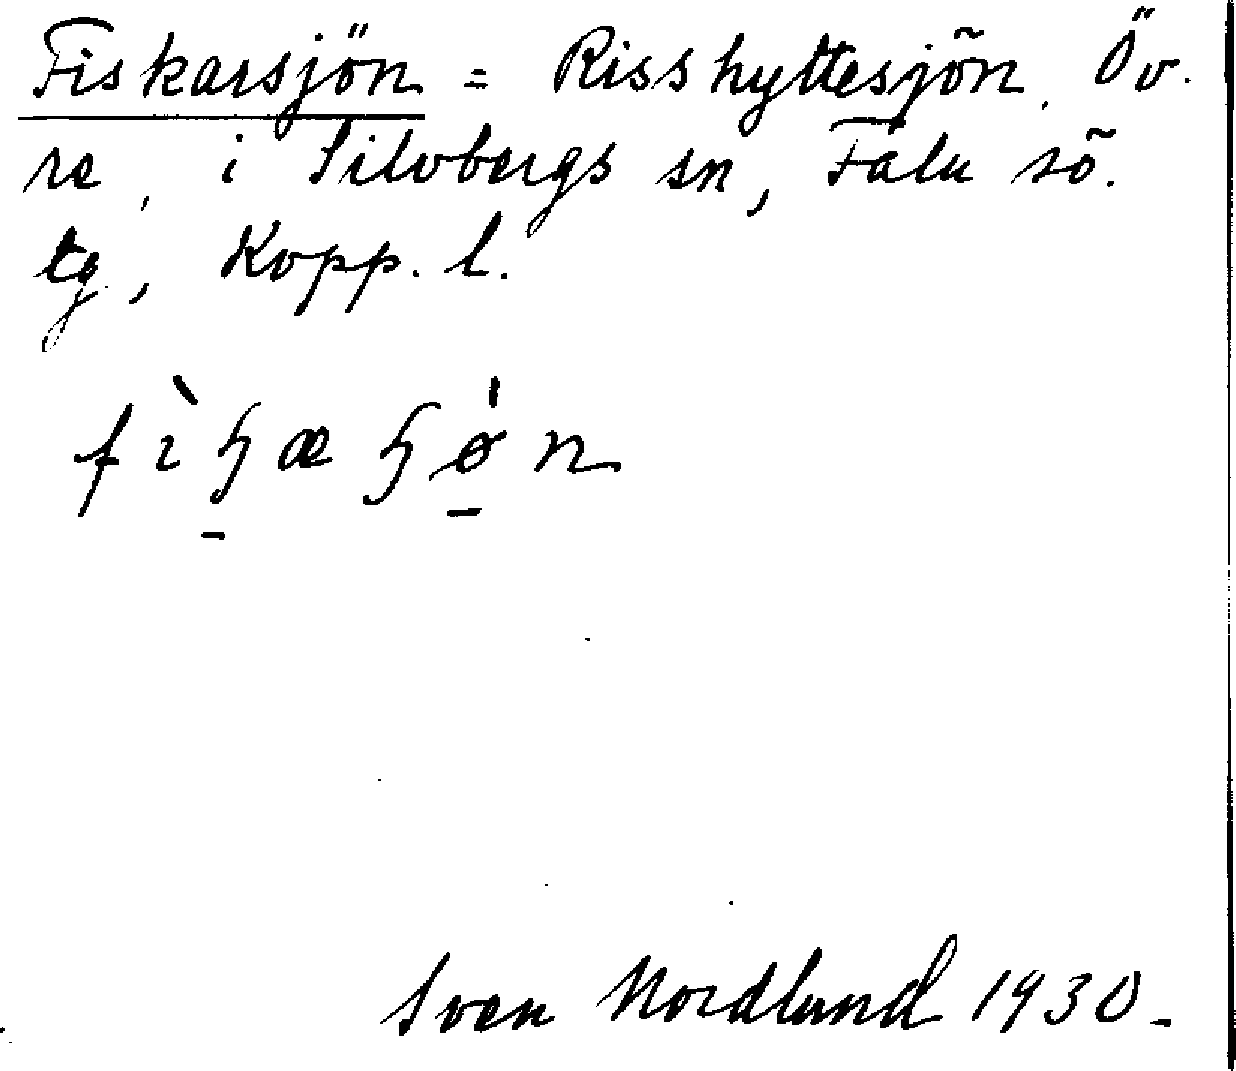 Fiskarsjön = Risshyttesjön, Öv-
re, i Silvbergs sn, Falu sö.
tg, Kopp. l.
fɩ̀ɧæɧø̍n
Sven Nordlund 1930.